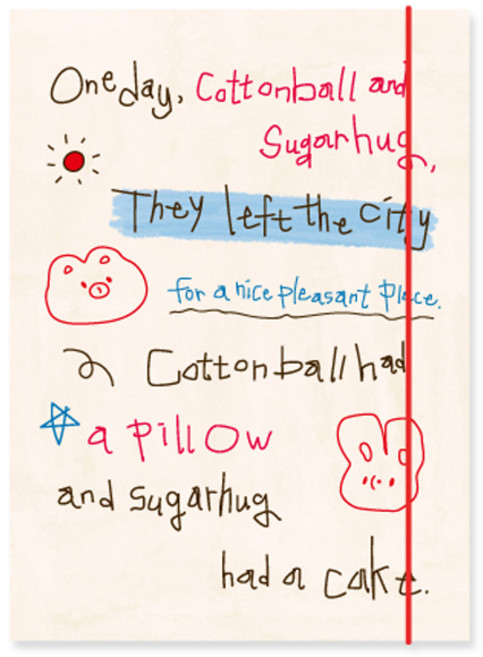 One day, Cottonball and
Sugarhug,
They left the city
for a nice pleasant place.
Cottonball had
a pillow
and sugarhug
had a cake.